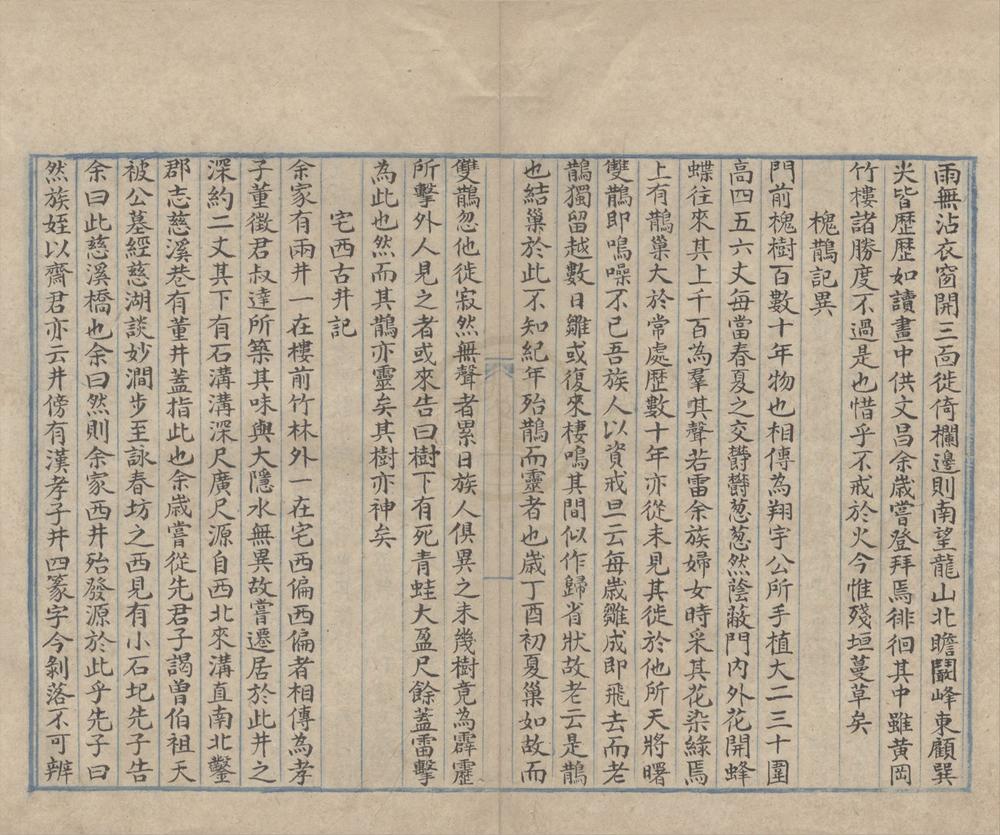 雨無沾衣窗開三面徙倚欄邊則南望龍山北瞻鬬峰東顧巽
尖皆歷歷如讀畫中供文昌余歲嘗登拜焉徘徊其中雖黃岡
竹樓諸勝度不過是也惜乎不戒於火今惟殘垣蔓草矣
槐鵲記異
門前槐樹百數十年物也相傳為翔宇公所手植大二三十圍
高四五六丈每當春夏之交欝欝葱葱然蔭蔽門內外花開蜂
蝶往來其上千百為羣其聲若雷余族婦女時采其花染綠焉
上有鵲巢大於常處歷數十年亦從未見其徙於他所天將曙
雙鵲即鳴噪不已吾族人以資戒旦云每歲雛成即飛去而老
鵲獨留越數日雛或復來棲鳴其間似作歸省狀故老云是鵲
也結巢於此不知紀年殆鵲而靈者也歲丁酉初夏巢如故而
雙鵲忽他徙寂然無聲者累日族人俱異之未幾樹竟為霹靂
所擊外人見之者或來告曰樹下有死青蛙大盈尺餘蓋雷擊
為此也然而其鵲亦靈矣其樹亦神矣
宅西古井記
余家有兩井一在樓前竹林外一在宅西偏西偏者相傳為孝
子董徵君叔達所築其味與大隱水無異故嘗遷居於此井之
深約二丈其下有石溝溝深尺廣尺源自西北來溝直南北鑿
郡志慈溪巷有董井蓋指此也余歲嘗從先君子謁曾伯祖天
被公墓經慈湖談妙澗步至詠春坊之西見有小石圯先子告
余曰此慈溪橋也余曰然則余家西井殆發源於此乎先子曰
然族姪以齋君亦云井傍有漢孝子井四篆字今剝落不可辨